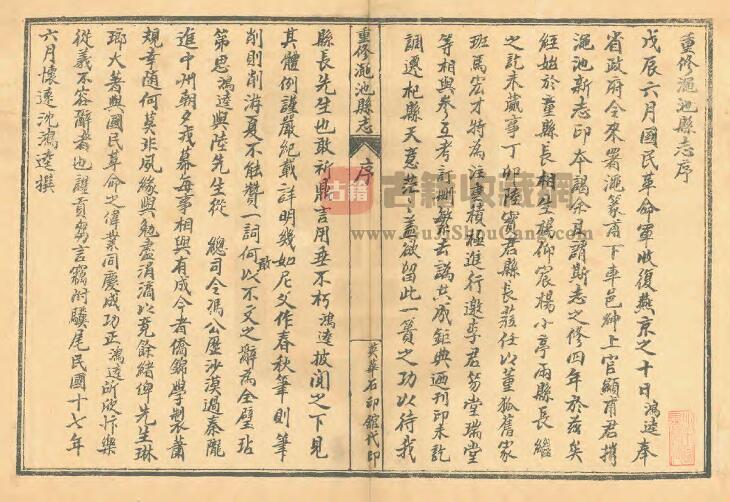 重修澠池縣志序
戊辰六月國民革命軍收復燕京之十日鴻逵奉
省政府令來署澠篆甫下車邑紳上官顯甫君攜
澠池新志印本謁余且謂斯志之修四年於茲矣
經始於董縣長相生楊仰宸楊小亭兩縣長繼
之訖未蕆事丁卯陸寶君縣長蒞任以董狐舊家
班馬宏才特為注意積極進行邀李君芳堂瑞堂
等相與參互考訂刪繁去譌共成鉅典迺刊印未訖
調遷杞縣天意茫茫蓋欲留此一簣之功以待我
重修澠池縣志
序
英華石印館代印
縣長先生也敢祈鼎言用垂不朽鴻逵披閱之下見
其體例謹嚴紀載詳明幾如尼父作春秋筆則筆
削則削游夏不能贊一詞何敢以不文之辭為全璧玷
第思鴻逵與陸先生從 總司令馮公歷沙漠過秦隴
進中州朝夕我幕每事相與有成今者僑錦學製蕭
規幸隨何莫非夙緣與勉盡涓滴以竟餘緒俾先生琳
瑯大著與國民革命之偉業同慶成功正鴻逵所欣忭樂
從義不容辭者也謹貢芻言竊附驥尾民國十七年
六月懷遠沈鴻逵撰
古籍收藏網
www.GuJiShouCang.com